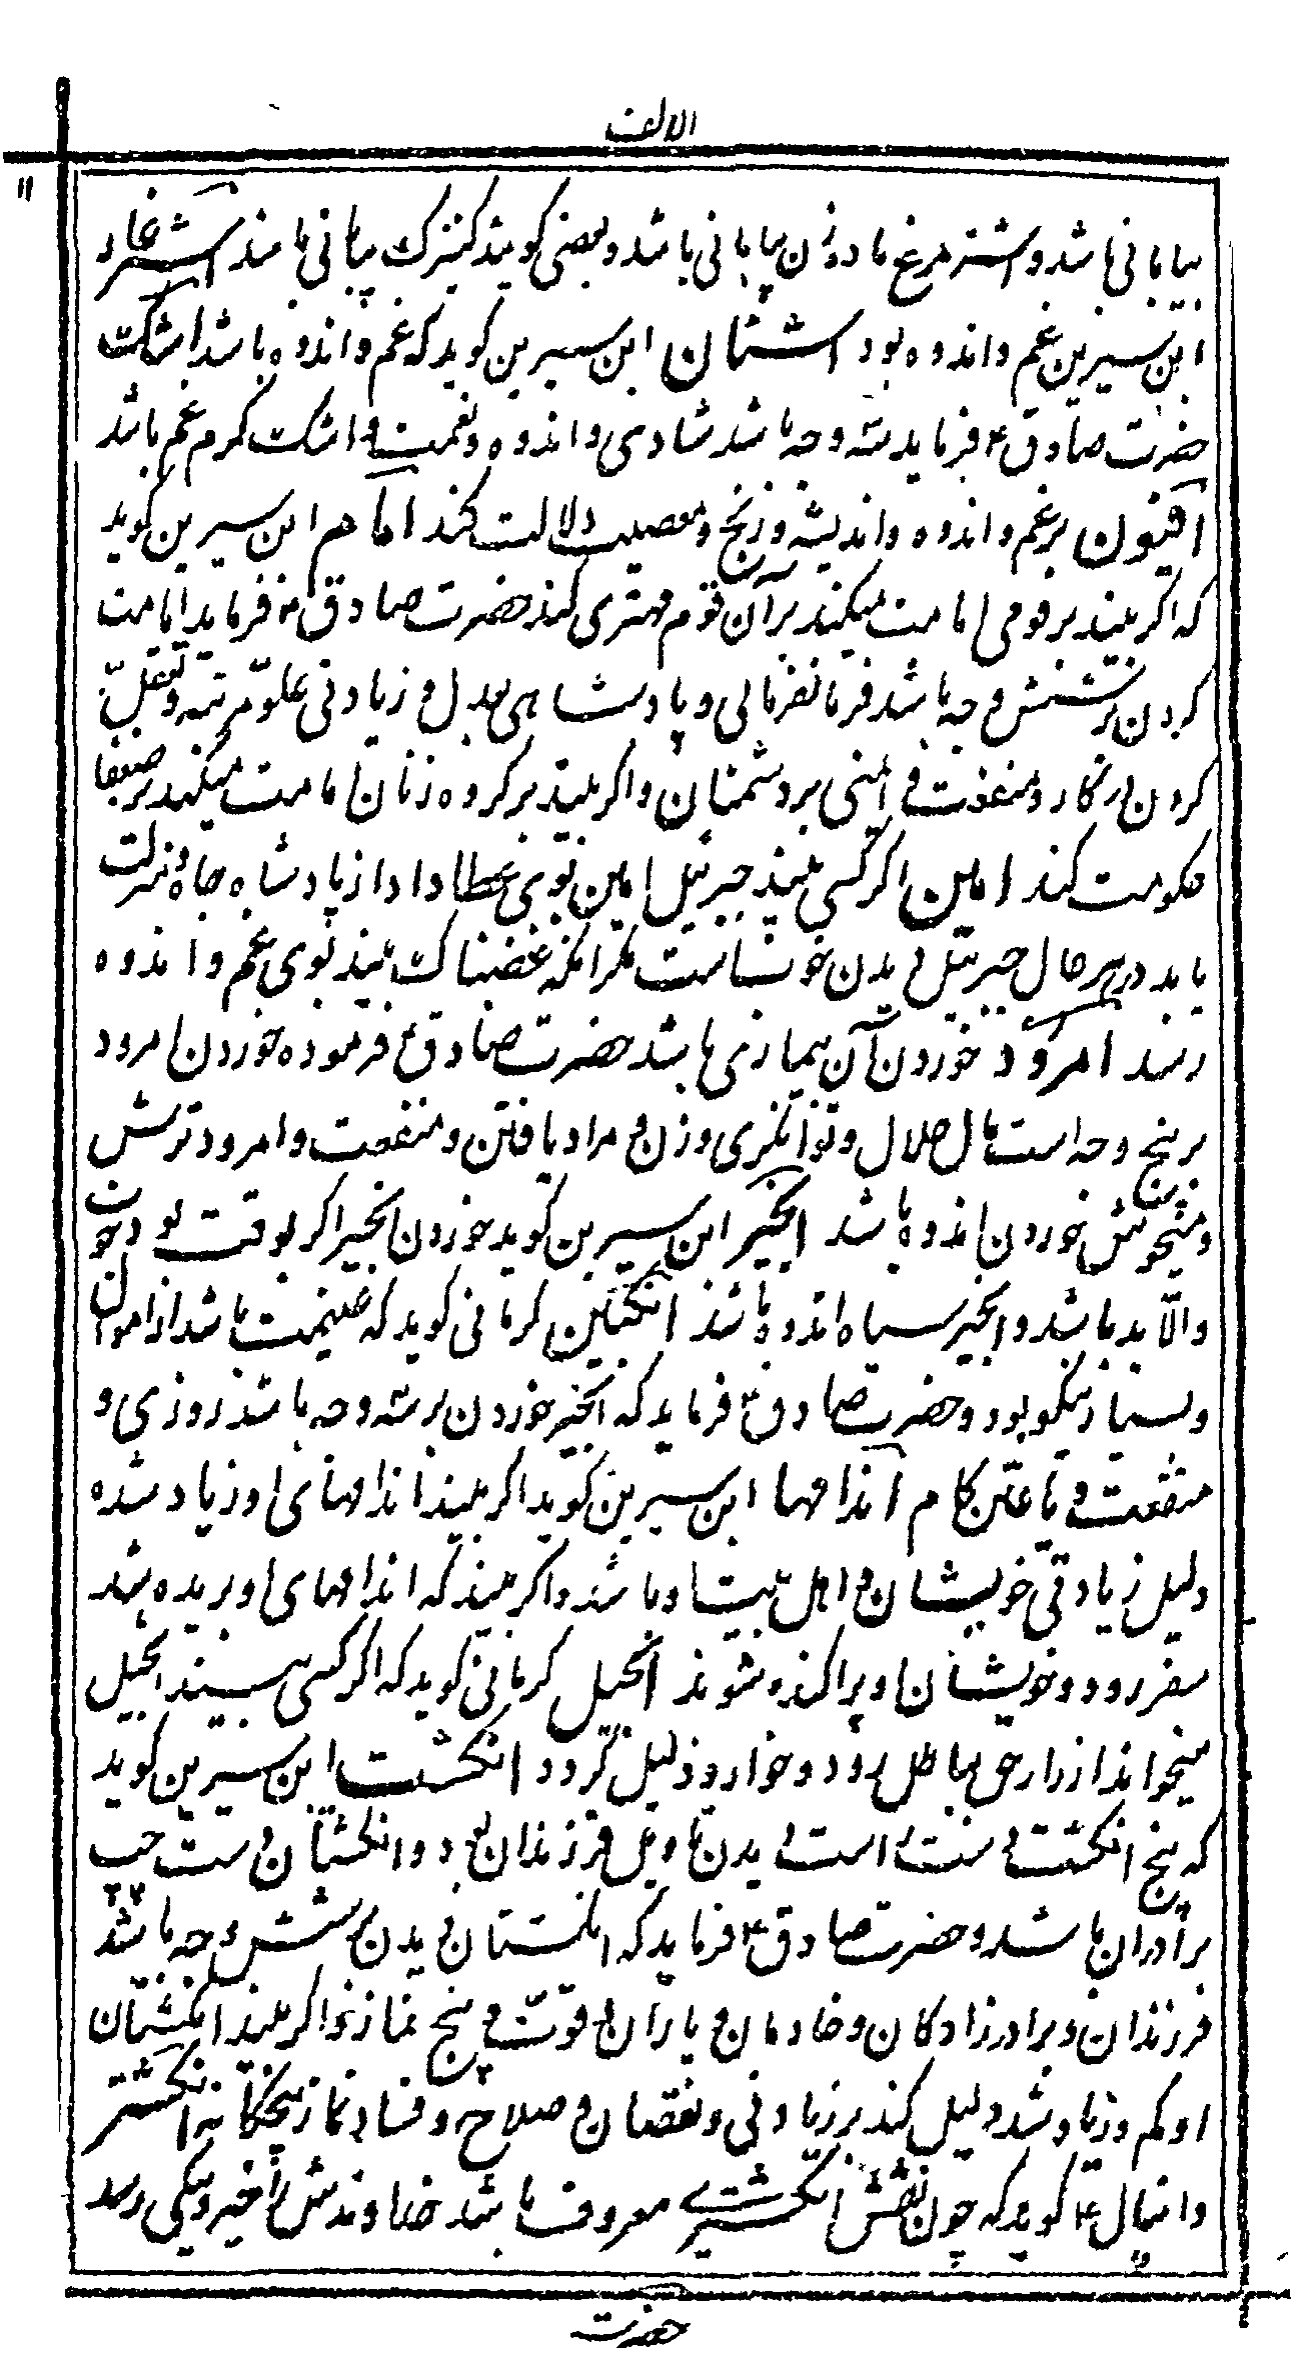 الالف
۱۱
بیابانی باشد و اشتر مرغ ماده زن بیابانی باشد و بعضی کویند کنیزک بیابانی باشد اشترغار
ابن سیرین غم و اندوه بود اشنان ابن سیرین کوید که غم و اندوه باشد اشک
حضرت صادق ۴ فرماید سه وجه باشد شادی و اندوه و نعمت و اشک کرم غم باشد
افیون بر غم و اندوه و اندیشه و رنج و مصیبت دلالت کند امام ابن سیرین کوید
که اکر بیند بر قومی امامت میکند بر آن قوم مهتری کند حضرت صادق ۴ فرماید امامت
کردن بر شش وجه باشد فرمانفرمائی و پادشاهی بعدل و زیادتی علو مرتبه و تعقل
کردن در کار و منفعت و ایمنی بر دشمنان و اکر بیند بر کروه زنان امامت میکند بر ضعفا
حکومت کند امین اکر کسی بیند جبرئیل امین توی عطا داد از پادشاه جاه و منزلت
یابد در هر حال جبرئیل دیدن خوش است مکر انکه غضبناک بیند توی غم و اندوه
رسد امرود خوردن آن بیماری باشد حضرت صادق ۴ فرموده خوردن امرود
بر پنج وجه است مال حلال و توانکری و زن و مراد یافتن و منفعت و امرود ترش
و میخوش خوردن اندوه باشد انجیر ابن سیرین کوید خوردن انجیر اکر بوقت بود خوب
والا بد باشد و انجیر سیاه اندوه باشد انکبین کرمانی کوید که غنیمت باشد از اموال
و بسیار نیکو بود و حضرت صادق ۴ فرماید که انجیر خوردن بر سه وجه باشد روزی و
منفعت و یافتن کام اندامها ابن سیرین کوید اکر بیند اندامهای او زیاد شده
دلیل زیادتی خویشان و اهل بیت او باشد و اکر بیند که اندامهای او بریده شد
سفر رود و خویشان او پراکنده شوند انجیل کرمانی کوید که اکر کسی بیند انجیل
میخواند از راه حق بباطل رود و خوار و ذلیل کردد انکشت ابن سیرین کوید
که پنج انکشت دست راست دیدن تاویل فرزندان بود و انکشتان دست چپ
برادران باشد و حضرت صادق ۴ فرماید که انکشتان دیدن بر شش وجه باشد
فرزندان و برادرزادکان و خادمان و یاران و قوت و پنج نماز و اکر بیند انکشتان
او کم و زیاد شد دلیل کند بر زیادتی و نقصان و صلاح و فساد نماز پنجکانه انکشتر
دانیال ۴ کوید که چون نقش انکشتری معروف باشد خداوندش را خیر و نیکی رسد
حضرت